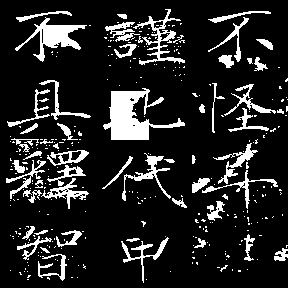 不怪耳
謹此代申
不具釋智